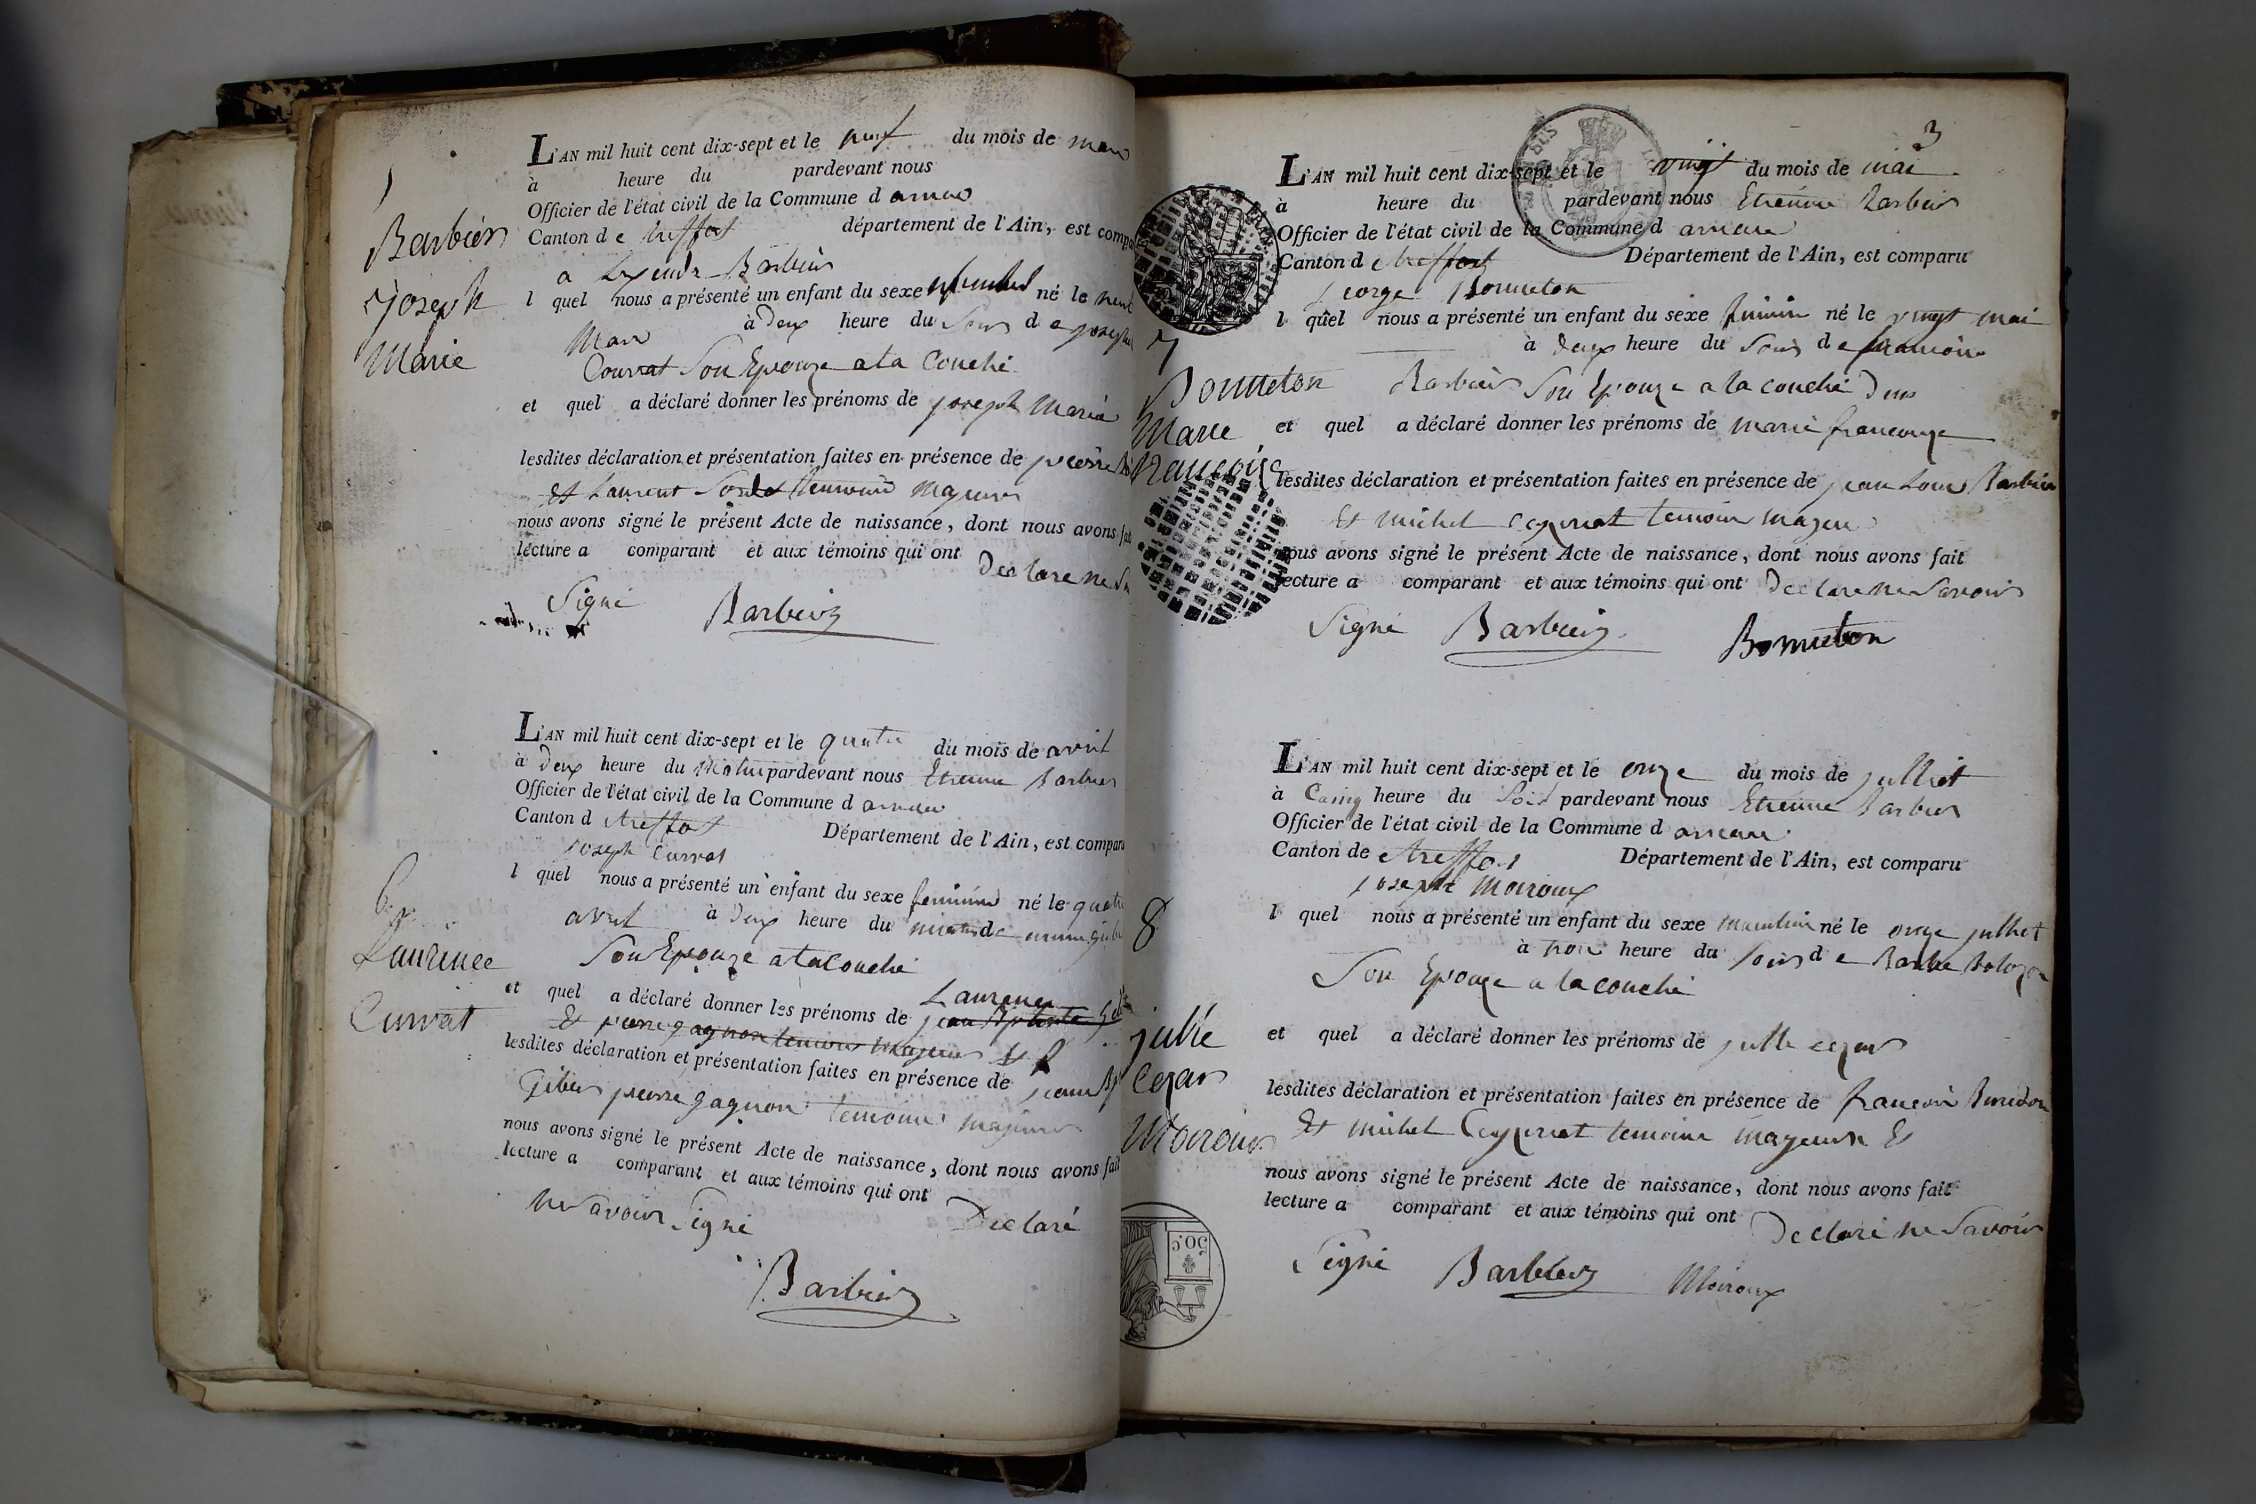 L'AN mil huit cent dix-sept et le neuf du mois de mars
à heure du pardevant nous
Officier de l'état civil de la Commune d arnan
Canton d e treffort département de l'Ain, est compa
Barbier
l quel nous a présenté un enfant du sexe né le neuf
Mars à deux heure du Soir d e joseph
Courvat Son Epouze a la Couche
et quel a déclaré donner les prénoms de joseph Marie
lesdites déclaration et présentation faites en présence de pierre
et Laurent temoins majeurs
nous avons signé le présent Acte de naissance, dont nous avons fait
lecture a comparant et aux témoins qui ont Declare ne
Signé Barbier
Barbier
joseph
Marie
L'AN mil huit cent dix-sept et le quatre du mois de avril
à deux heure du Matin pardevant nous Etienne Barbier
Officier de l'état civil de la Commune d arnan
Canton d e treffort Département de l'Ain, est comparu
joseph Curvat
l quel nous a présenté un enfant du sexe feminin né le quatre
avril à deux heure du matin d e
Son Epouze a la Couche
et quel a déclaré donner les prénoms de Laurence
et pierre gagnon temoins majeurs et
lesdites déclaration et présentation faites en présence de jean
pierre gagnon temoins majeurs
nous avons signé le présent Acte de naissance, dont nous avons fait
lecture a comparant et aux témoins qui ont Declaré
ne Savoir Signé
Barbier
6
Laurence
Curvat
3
L'AN mil huit cent dix-sept et le vingt du mois de mai
à heure du pardevant nous Etienne Barbier
Officier de l'état civil de la Commune d arnan
Canton d e treffort Département de l'Ain, est comparu
george Bonneton
l quel nous a présenté un enfant du sexe feminin né le vingt mai
à deux heure du Soir d e
Barbier Son Epouze a la couche
et quel a déclaré donner les prénoms de marie francouze
lesdites déclaration et présentation faites en présence de jean Louis Barbier
et michel temoins majeurs
nous avons signé le présent Acte de naissance, dont nous avons fait
lecture a comparant et aux témoins qui ont Declare ne Savoir
Signé Barbier Bonneton
7
Bonneton
Marie
francoise
L'AN mil huit cent dix-sept et le onze du mois de julliet
à Cainq heure du Soir pardevant nous Etienne Barbier
Officier de l'état civil de la Commune d arnan
Canton de treffort Département de l'Ain, est comparu
joseph Moiroux
l quel nous a présenté un enfant du sexe masculin né le onze julliet
à trois heure du Soir d e Barbe Bolozon
Son Epouze a la couche
et quel a déclaré donner les prénoms de julle cezar
lesdites déclaration et présentation faites en présence de francois
et michel temoins majeurs et
nous avons signé le présent Acte de naissance, dont nous avons fait
lecture a comparant et aux témoins qui ont Declaré ne Savoir
Signé Barbier Moiroux
8
julle
Cezar
Moiroux
50 c.